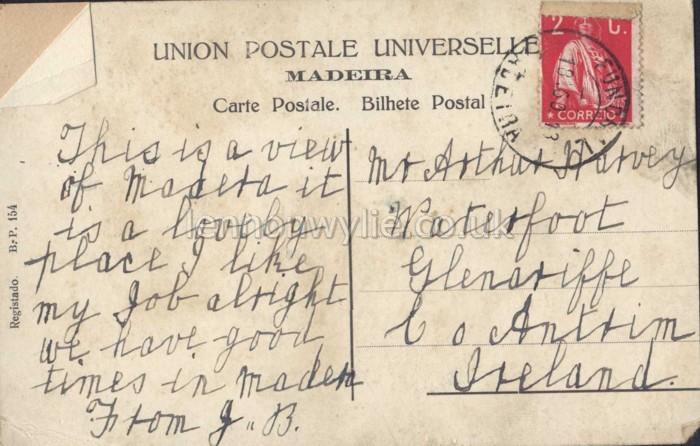 UNION POSTALE UNIVERSELLE
MADEIRA
Carte Postale. Bilhete Postal
2 C.
CORREIO
FUNCHAL
MADEIRA
This is a view
of Madera it
is a lovely
place I like
my Job alright
we have good
times in mader
From J. B.
Mr Arthur Harvey
Waterfoot
Glenariffe
Co Antrim
Ireland.
Registado. B. P. 154
lennonwylie.co.uk